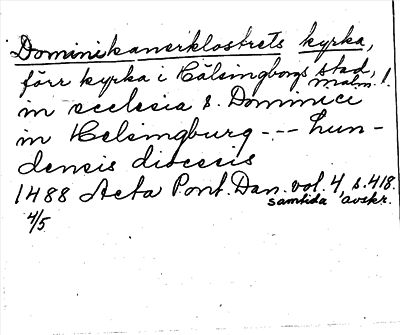 Dominikanerklostrets kyrka,
förr kyrka i Hälsingborgs stad,
Malm. l.
in ecclesia s. Dominici
in Helsingburg --- Lun-
densis diocesis
1488 Acta Pont. Dan. vol. 4, s. 418.
4/5 samtida avskr.